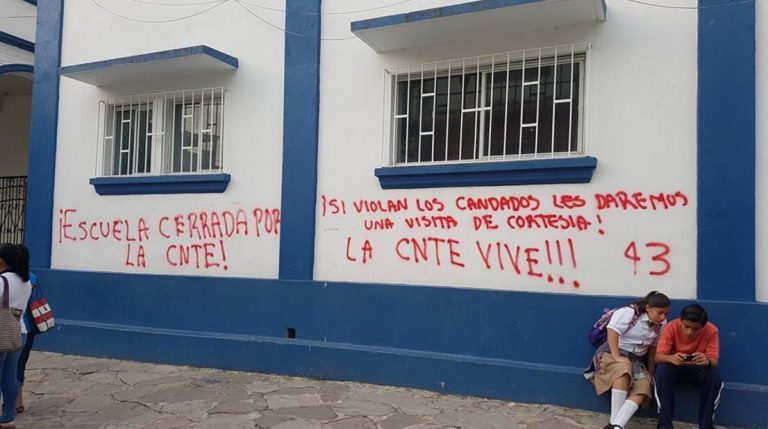 ¡ESCUELA CERRADA POR
LA CNTE!
¡SI VIOLAN LOS CANDADOS LES DAREMOS
UNA VISITA DE CORTESIA!
LA CNTE VIVE!!! 43